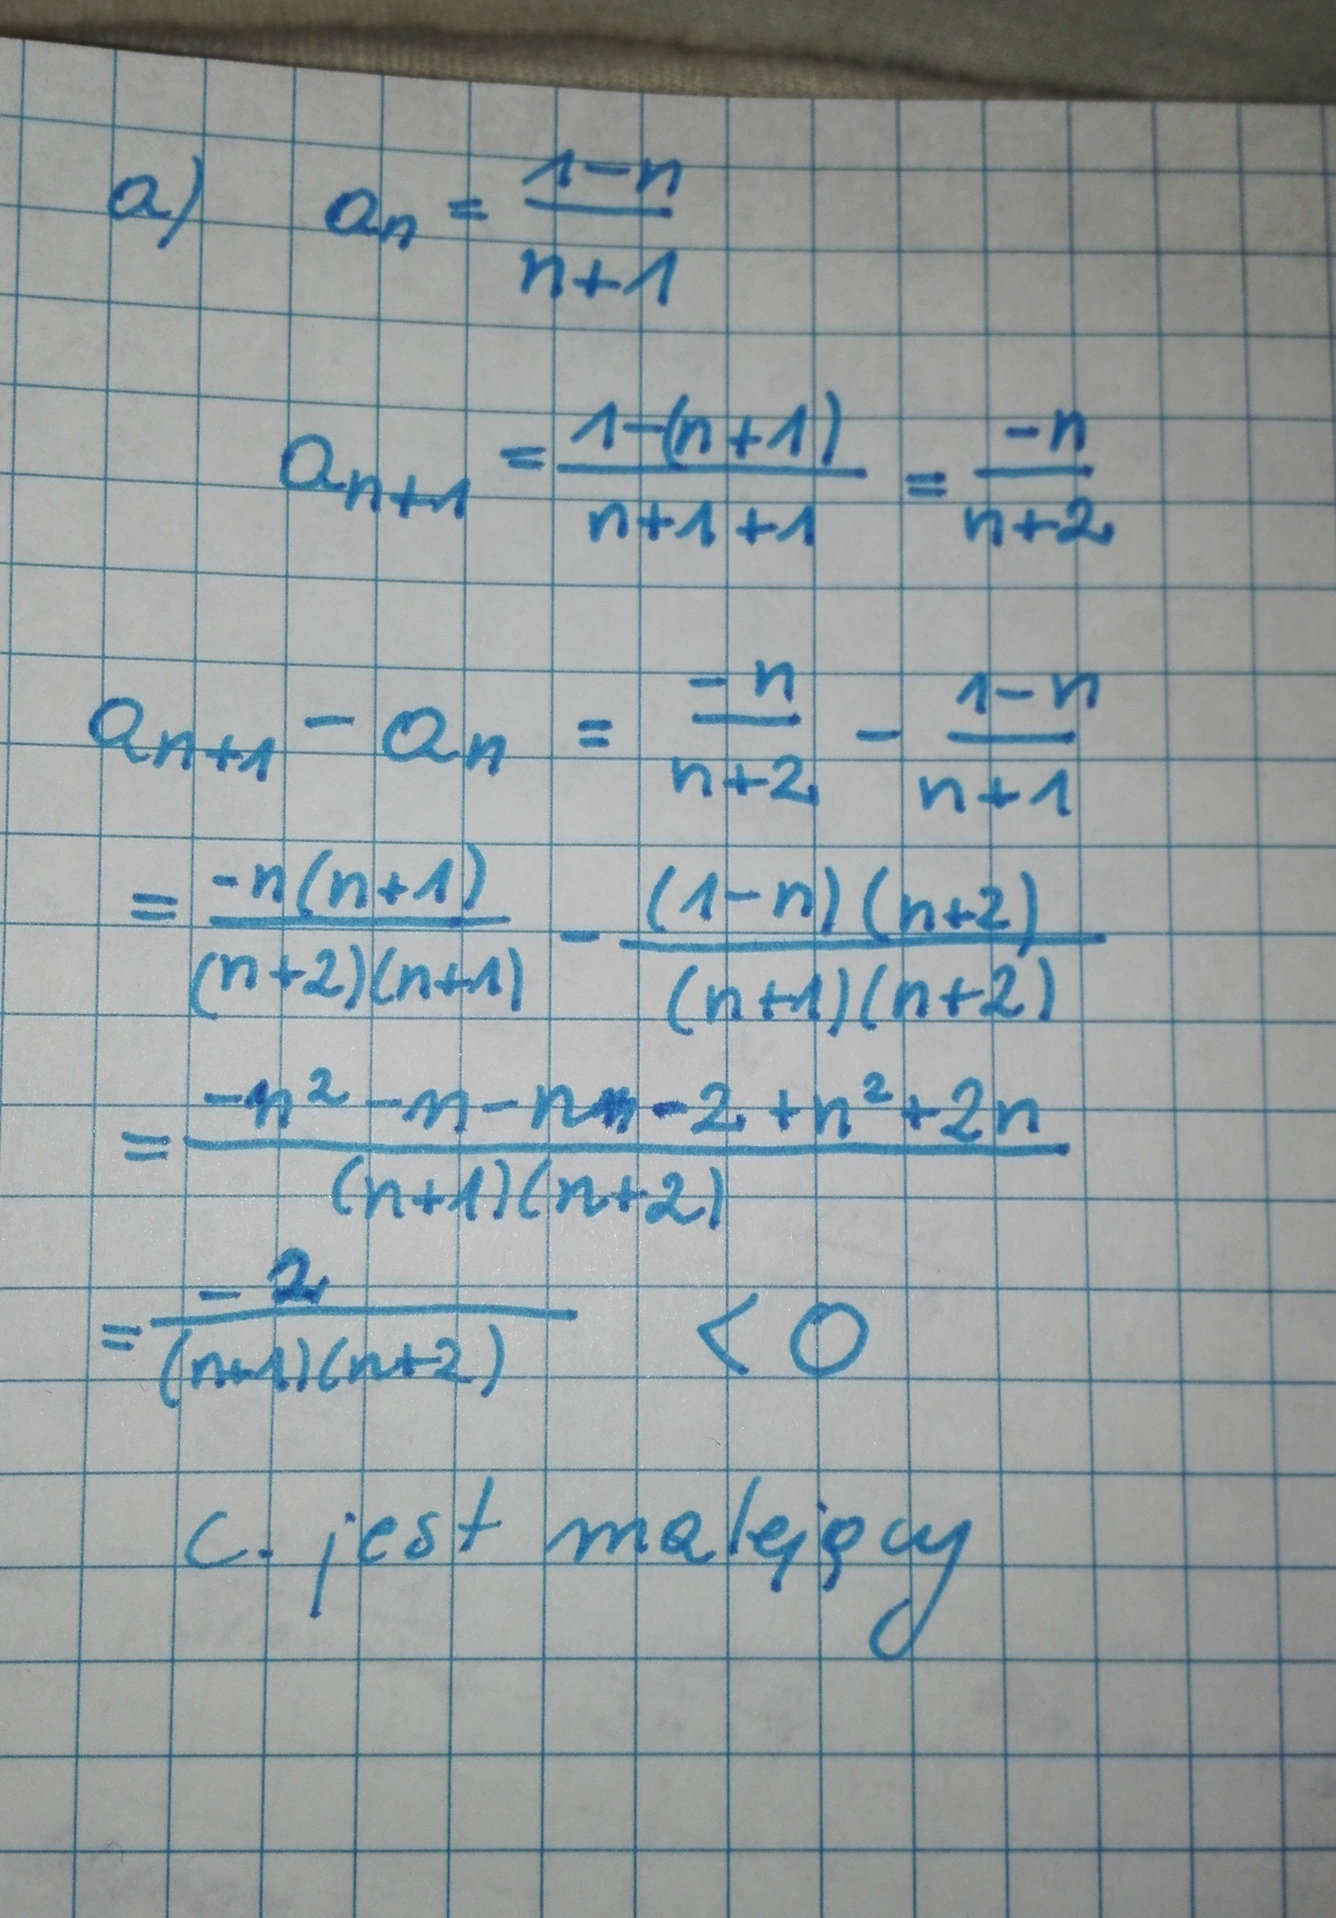 a) aₙ = (1-n)/(n+1)
aₙ₊₁ = (1-(n+1))/(n+1+1) = (-n)/(n+2)
aₙ₊₁ - aₙ = (-n)/(n+2) - (1-n)/(n+1)
= (-n(n+1))/((n+2)(n+1)) - ((1-n)(n+2))/((n+1)(n+2))
= (-n²-n-n-2+n²+2n)/((n+1)(n+2))
= (-2)/((n+1)(n+2)) < 0
c. jest malejący